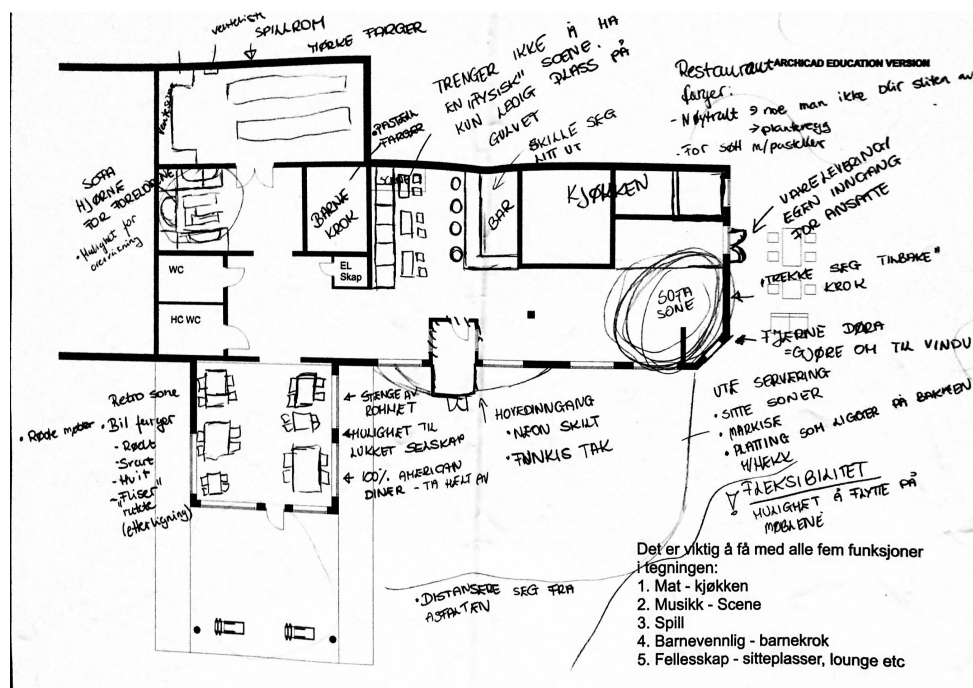 SPILLROM
MØRKE FARGER
TRENGER IKKE Å HA
EN "FYSISK" SCENE.
KUN LEDIG PLASS PÅ
GULVET
SKILLE SEG
LITT UT
• PASTELL
FARGER
Restaurant
farger:
ARCHICAD EDUCATION VERSION
- Nøytralt → noe man ikke blir sliten av
→ planteregg
- For søtt m/pasteller
SOFA
HJØRNE
FOR FORELDRENE
• Mulighet for
overvåkning
BARNE
KROK
BAR
KJØKKEN
VARELEVERING/
EGEN INNGANG
FOR ANSATTE
"TREKKE SEG TILBAKE"
KROK
SOFA
SONE
WC
HC WC
EL
Skap
FJERNE DØRA
=GJØRE OM TIL VINDU
Retro sone
• Røde møbler
• Bil farger
- Rødt
- Svart
- Hvit
- "Fliser"
rutete
(etterligning)
STENGE AV
ROMMET
MULIGHET TIL
LUKKET SELSKAP
100% AMERICAN
DINER - TA HELT AV
HOVEDINNGANG
• NEON SKILT
• FUNKIS TAK
UTE SERVERING
• SITTE SONER
• MARKISE
• PLATTING SOM LIGGER PÅ BAKKEN
M/HEKK
! FLEKSIBILITET
MULIGHET Å FLYTTE PÅ
MØBLENE
• DISTANSERE SEG FRA
ASFALTEN
Det er viktig å få med alle fem funksjoner
i tegningen:
1. Mat - kjøkken
2. Musikk - Scene
3. Spill
4. Barnevennlig - barnekrok
5. Fellesskap - sitteplasser, lounge etc